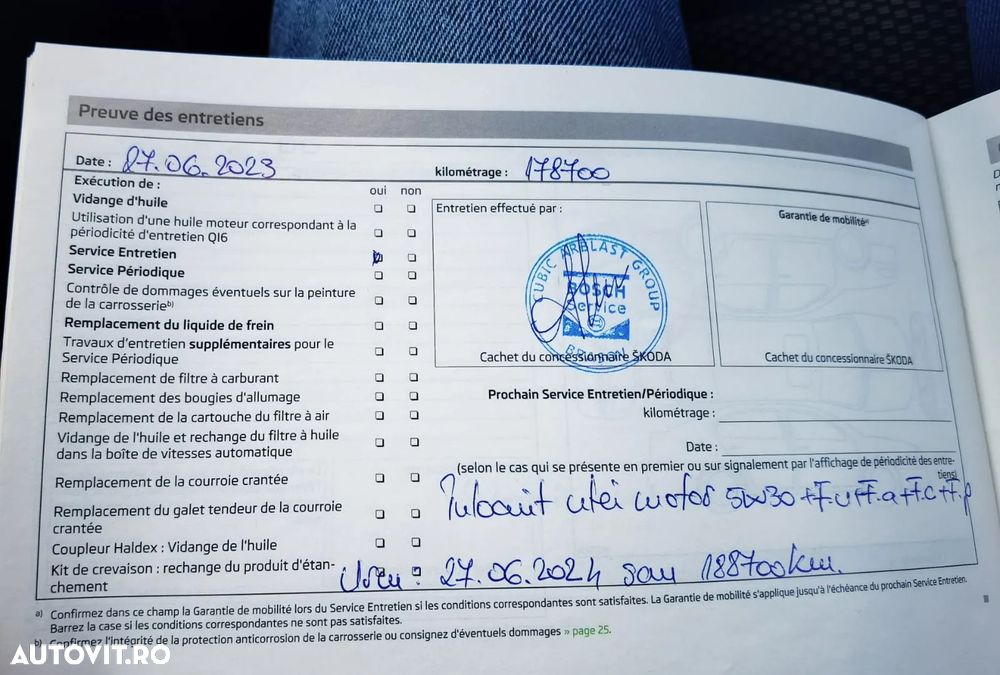 Preuve des entretiens
Date : 27.06.2023
kilométrage : 178700
Exécution de :
oui non
Vidange d'huile
Utilisation d'une huile moteur correspondant à la
périodicité d'entretien QI6
Service Entretien
Service Périodique
Contrôle de dommages éventuels sur la peinture
de la carrosserieᵇ⁾
Remplacement du liquide de frein
Travaux d'entretien supplémentaires pour le
Service Périodique
Remplacement de filtre à carburant
Remplacement des bougies d'allumage
Remplacement de la cartouche du filtre à air
Vidange de l'huile et rechange du filtre à huile
dans la boîte de vitesses automatique
Remplacement de la courroie crantée
Remplacement du galet tendeur de la courroie
crantée
Coupleur Haldex : Vidange de l'huile
Kit de crevaison : rechange du produit d'étan-
chement
Entretien effectué par :
CUBIC ARBLAST GROUP
BOSCH
Service
Cachet du concessionnaire ŠKODA
Garantie de mobilitéᵃ⁾
Cachet du concessionnaire ŠKODA
Prochain Service Entretien/Périodique :
kilométrage :
Date :
(selon le cas qui se présente en premier ou sur signalement par l'affichage de périodicité des entre-
tiens)
ulei motor 5W30 +F.u+F.a+F.c+F.p
27.06.2024 sau 188700km.
a) Confirmez dans ce champ la Garantie de mobilité lors du Service Entretien si les conditions correspondantes sont satisfaites. La Garantie de mobilité s'applique jusqu'à l'échéance du prochain Service Entretien.
Barrez la case si les conditions correspondantes ne sont pas satisfaites.
b) Confirmez l'intégrité de la protection anticorrosion de la carrosserie ou consignez d'éventuels dommages » page 25.
AUTOVIT.RO